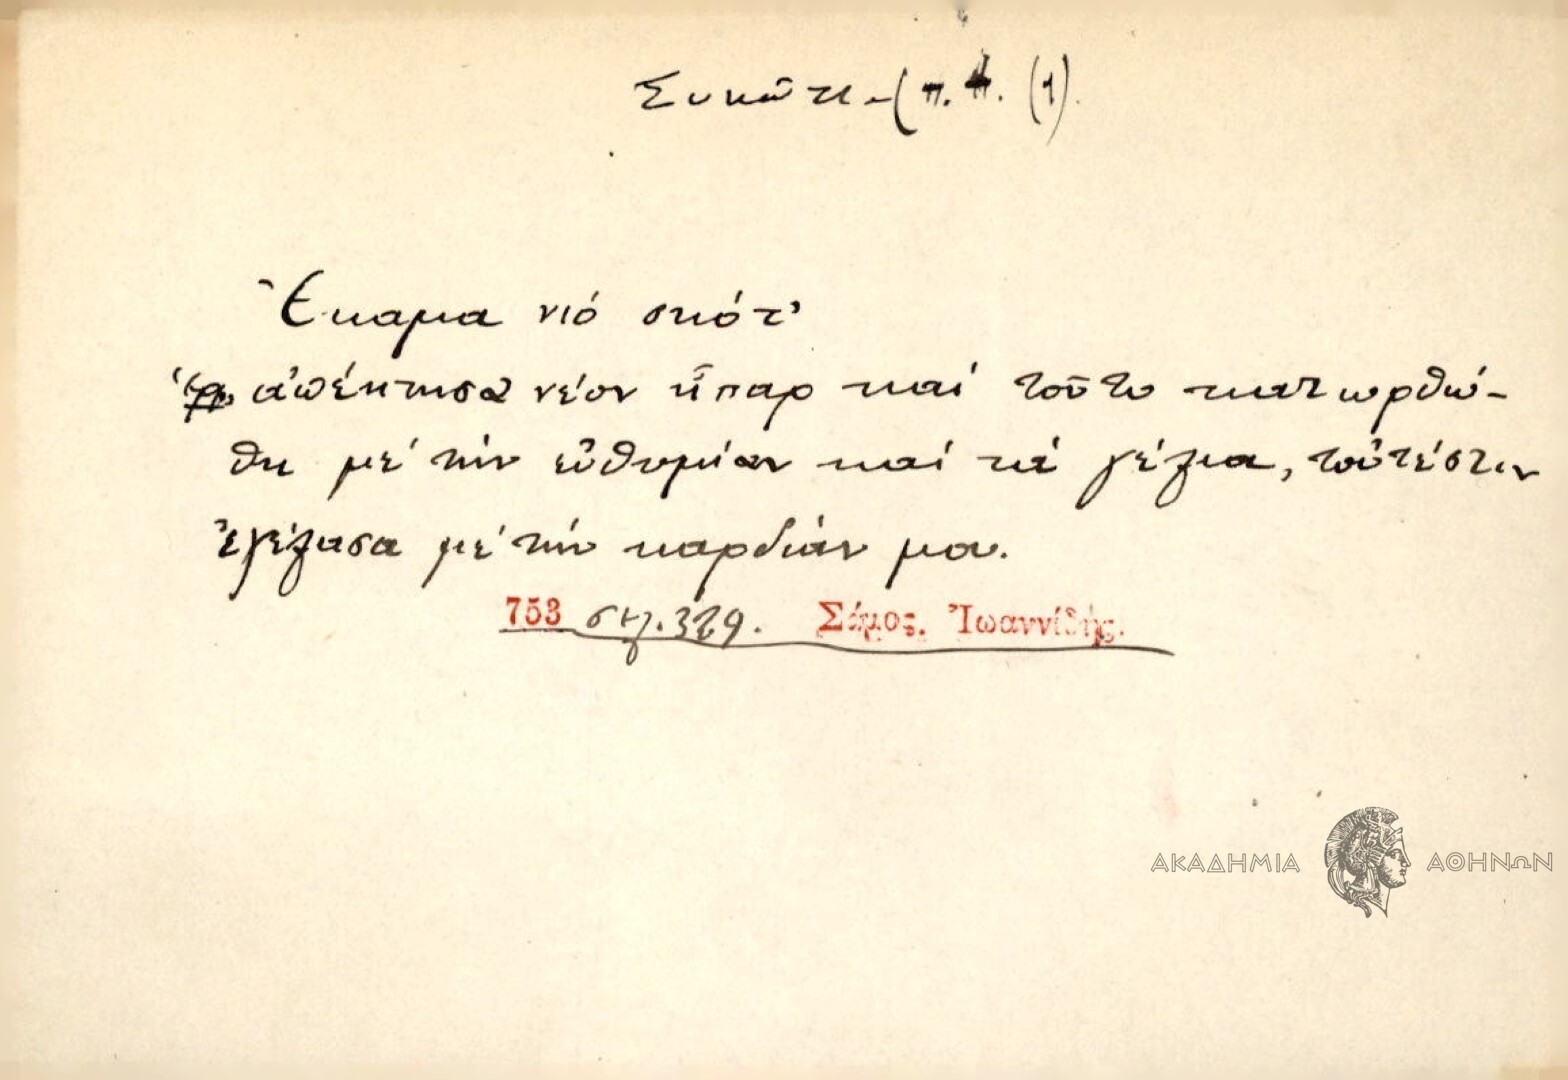 Συκῶτι - (π. π. (1).
Ἔκαμα νιό σκότ'
ἀπέκτησα νέον ἧπαρ καί τοῦτο κατωρθώ-
θη μέ τήν εὐθυμίαν καί τά γέλια, τοὐτέστιν
ἐγέλασα μέ τήν καρδιάν μου.
753 σελ. 329. Σάμος. Ἰωαννίδης.
ΑΚΑΔΗΜΙΑ ΑΘΗΝΩΝ